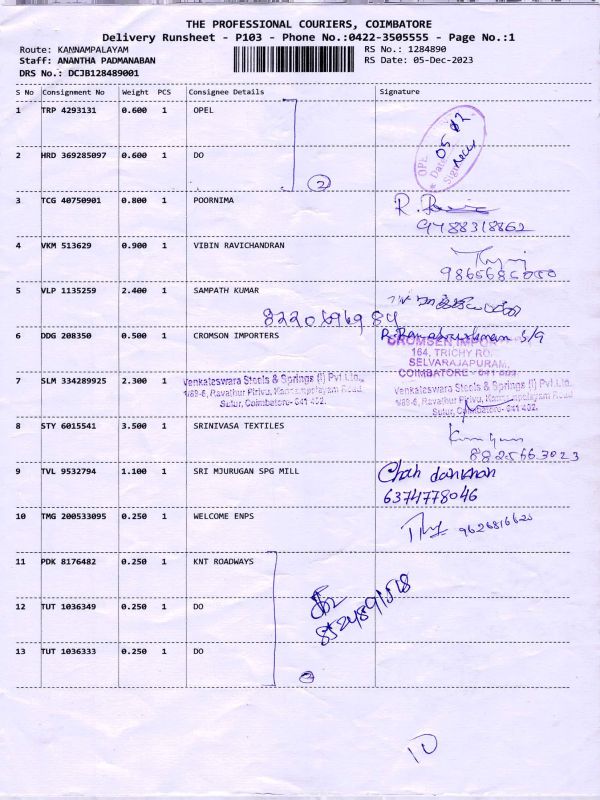 THE PROFESSIONAL COURIERS, COIMBATORE
Delivery Runsheet - P103 - Phone No.:0422-3505555 - Page No.:1
Route: KANNAMPALAYAM RS No.: 1284890
Staff: ANANTHA PADMANABAN RS Date: 05-Dec-2023
DRS No.: DCJB128489001
S No Consignment No Weight PCS Consignee Details Signature
1 TRP 4293131 0.600 1 OPEL
OPE
Date 05 12
Sign
2 HRD 369285097 0.600 1 DO
2
3 TCG 40750901 0.800 1 POORNIMA R.
9488318862
4 VKM 513629 0.900 1 VIBIN RAVICHANDRAN
9865685050
5 VLP 1135259 2.400 1 SAMPATH KUMAR
8220696984
6 DDG 208350 0.500 1 CROMSON IMPORTERS
CROMSEN IMPO
164, TRICHY RO
SELVARAJAPURAM,
COIMBATORE - 641 103.
7 SLM 334289925 2.300 1 Venkateswara Steels & Springs (I) Pvt Ltd., Venkateswara Steels & Springs (I) Pvt Ltd.,
1/89-6, Ravathur Pirivu, Kannampalayam Road, 1/89-6, Ravathur Pirivu, Kannampalayam Road,
Sulur, Coimbatore- 641 402. Sulur, Coimbatore- 641 402.
8 STY 6015541 3.500 1 SRINIVASA TEXTILES
8825663023
9 TVL 9532794 1.100 1 SRI MJURUGAN SPG MILL
6374778046
10 TMG 200533095 0.250 1 WELCOME ENPS 9626816620
11 PDK 8176482 0.250 1 KNT ROADWAYS
12 TUT 1036349 0.250 1 DO
8524891518
13 TUT 1036333 0.250 1 DO
10